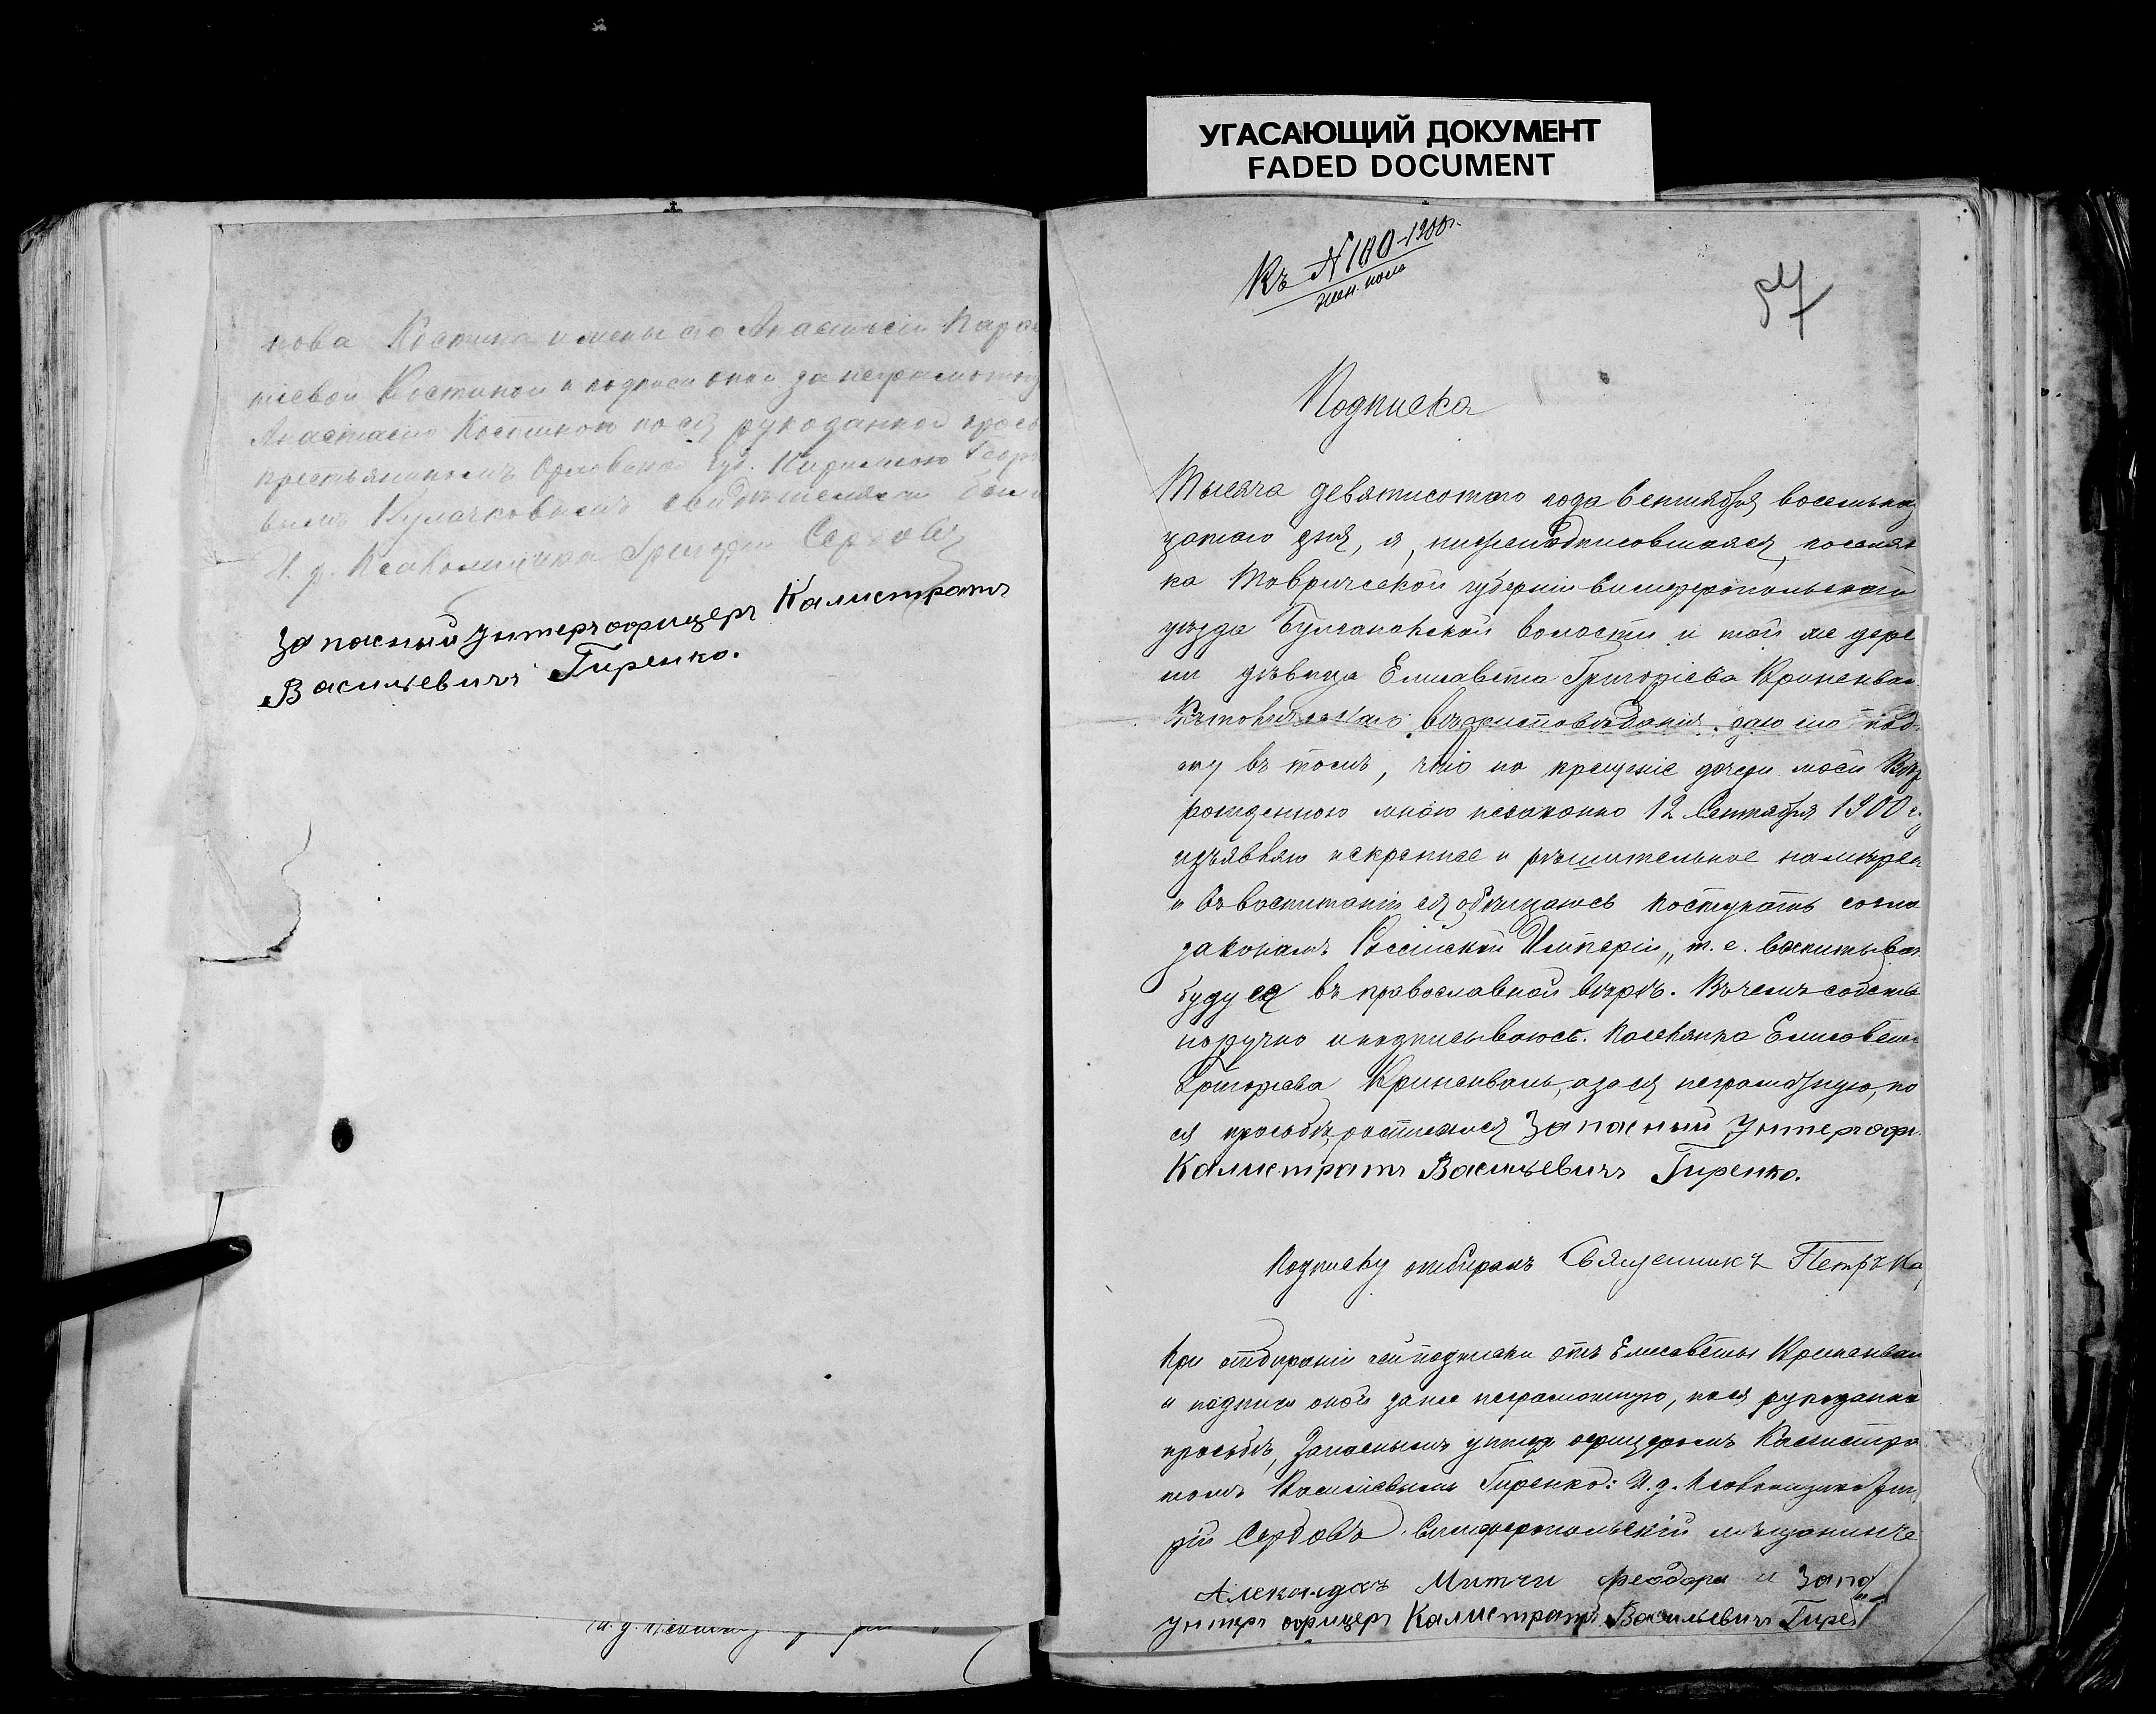 УГАСАЮЩИЙ ДОКУМЕНТ
FADED DOCUMENT
нова Костина и жены его Анастасiи
Костиной и подписи оной за неграмотную
Анастасiю Костину по ея рукоданной
крестьяниномъ Орловской губ.
вымъ Кулачковымъ свидѣтелями были
И. д. Псаломщика Григорiй Сербовъ
Запасный унтеръ офицеръ Калистратъ
Васильевичъ Гиренко.
Къ N 100 - 1900 г.
жен. пола
57
Подписка
Тысяча девятисотаго года Сентября восемьнад
цатаго дня, я, нижеподписовшаяся, поселян
ка Таврической губернiи Симферопольскаго
уѣзда Булганакской волости и той же дере
ни дѣвица Елисавета Григорiева Криненваль
вѣроисповѣданiя даю сiю под-
ску въ томъ, что на крещенiе дочери моей Вѣр
рожденною мною незаконно 12 Сентября 1900 г.
изъявляю искреннее и рѣшительное намѣрен
и въ воспитанiи ея обѣщаюсь поступать согла
законамъ Россiйской Имперiи, т. е. воспитыват
буду ея въ православной вѣрѣ. Въ чемъ собствен
норучно и подписываюсь. Поселянка Елисавета
Григорiева Криненваль, а за ея неграмотную, по
ея просьбѣ, росписался Запасный Унтеръ офи.
Калистратъ Васильевичъ Гиренко.
Подписку отбиралъ Священникъ Петръ Ка
При отбиранiи сей подписки отъ Елисаветы Криненваль
и подписи оной за нее неграмотную, по ея рукоданно
просьбѣ, Запаснымъ унтеръ офицеромъ Калистра
томъ Васильевымъ Гиренко: И. д. Псаломщика Григо
рiй Сербовъ. Симферопольскiй мѣщанинъ
Александръ Митчи Феодоръ и Запа
унтеръ офицеръ Калистратъ Васильевичъ Гирен